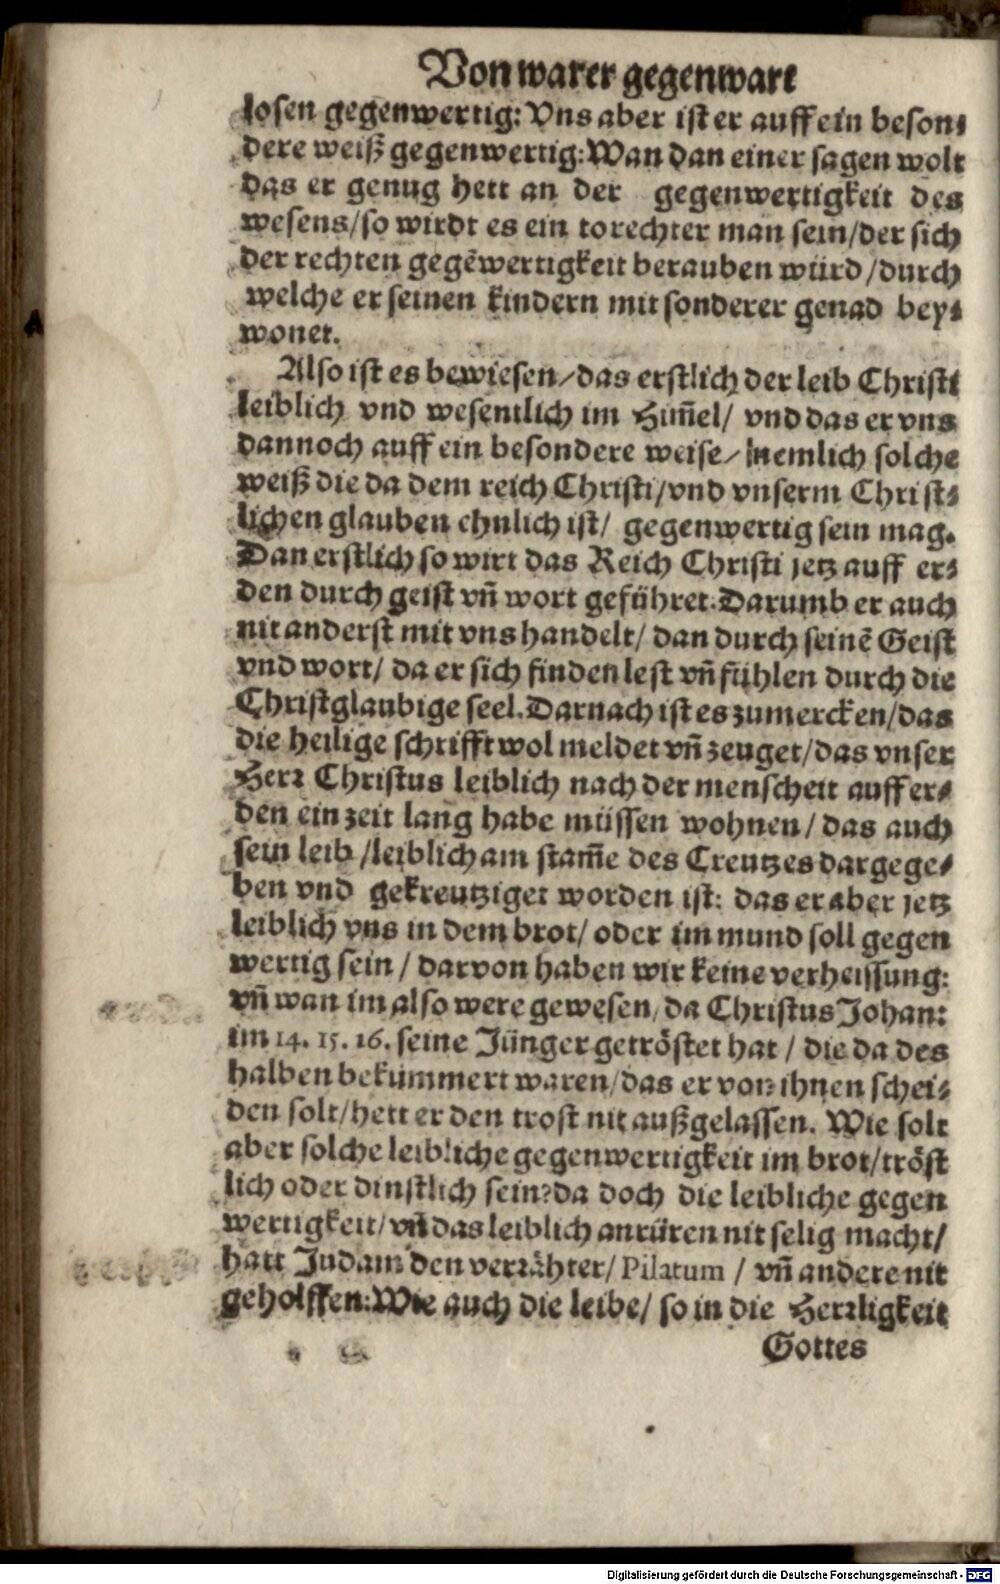 Von warer gegenwart
losen gegenwertig: Vns aber ist er auff ein beson⸗
dere weiß gegenwertig: Wan dan einer sagen wolt
das er genug hett an der gegenwertigkeit des
wesens/ so wirdt es ein torechter man sein/ der sich
der rechten gegẽwertigkeit berauben würd/ durch
welche er seinen kindern mit sonderer genad bey⸗
wonet.
Also ist es bewiesen/ das erstlich der leib Christi
leiblich vnd wesentlich im Him̃el/ vnd das er vns
dannoch auff ein besondere weise/ nemlich solche
weiß die da dem reich Christi/ vnd vnserm Christ⸗
lichen glauben ehnlich ist/ gegenwertig sein mag.
Dan erstlich so wirt das Reich Christi jetz auff er⸗
den durch geist vñ wort geführet. Darumb er auch
nit anderst mit vns handelt/ dan durch seinẽ Geist
vnd wort/ da er sich finden lest vñ fühlen durch die
Christglaubige seel. Darnach ist es zumercken/ das
die heilige schrifft wol meldet vñ zeuget/ das vnser
Herr Christus leiblich nach der menscheit auff er⸗
den ein zeit lang habe müssen wohnen/ das auch
sein leib/ leiblich am stam̃e des Creutzes dargege⸗
ben vnd gekreutziget worden ist: das er aber jetz
leiblich vns in dem brot/ oder im mund soll gegen
wertig sein/ darvon haben wir keine verheissung:
vñ wan im also were gewesen/ da Christus Johan:
im 14. 15. 16. seine Jünger getröstet hat/ die da des
halben bekümmert waren/ das er von ihnen schei⸗
den solt/ hett er den trost nit außgelassen. Wie solt
aber solche leibliche gegenwertigkeit im brot/ tröst
lich oder dinstlich sein? da doch die leibliche gegen
wertigkeit/ vñ das leiblich anrüren nit selig macht/
hatt Judam den verrähter/ Pilatum/ vñ andere nit
geholffen: Wie auch die leibe/ so in die Herrligkeit
Gottes
Digitalisierung gefördert durch die Deutsche Forschungsgemeinschaft - DFG